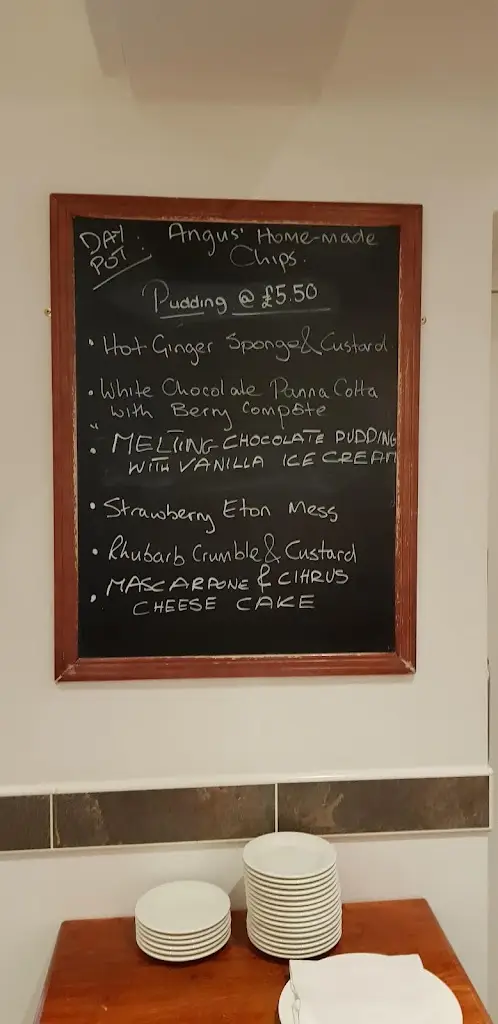 DAY POT : Angus' Home-made
Chips.
Pudding @ £5.50
• Hot Ginger Sponge & Custard
• White Chocolate Panna Cotta
with Berry Compôte
• MELTING CHOCOLATE PUDDING
WITH VANILLA ICE CREAM
• Strawberry Eton Mess
• Rhubarb Crumble & Custard
• MASCARPONE & CITRUS
CHEESE CAKE